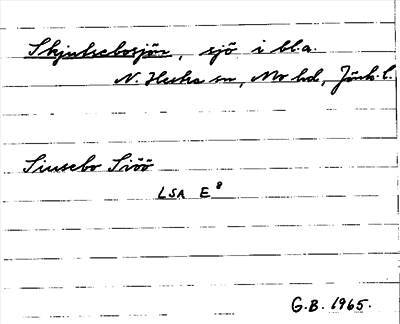 Skjutsebosjön, sjö i bl.a.
N. Hestra sn, Mo hd, Jönk. l.
Siusebo Siöö
LSA E⁸
G.B. 1965.